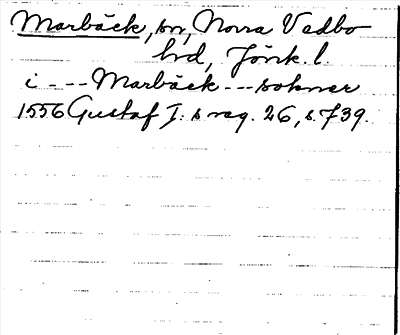 Marbäck, sn, Norra Vedbo
hd, Jönk. l.
i --- Marbäck --- sokner
1556 Gustaf I:s reg. 26, s. 739.